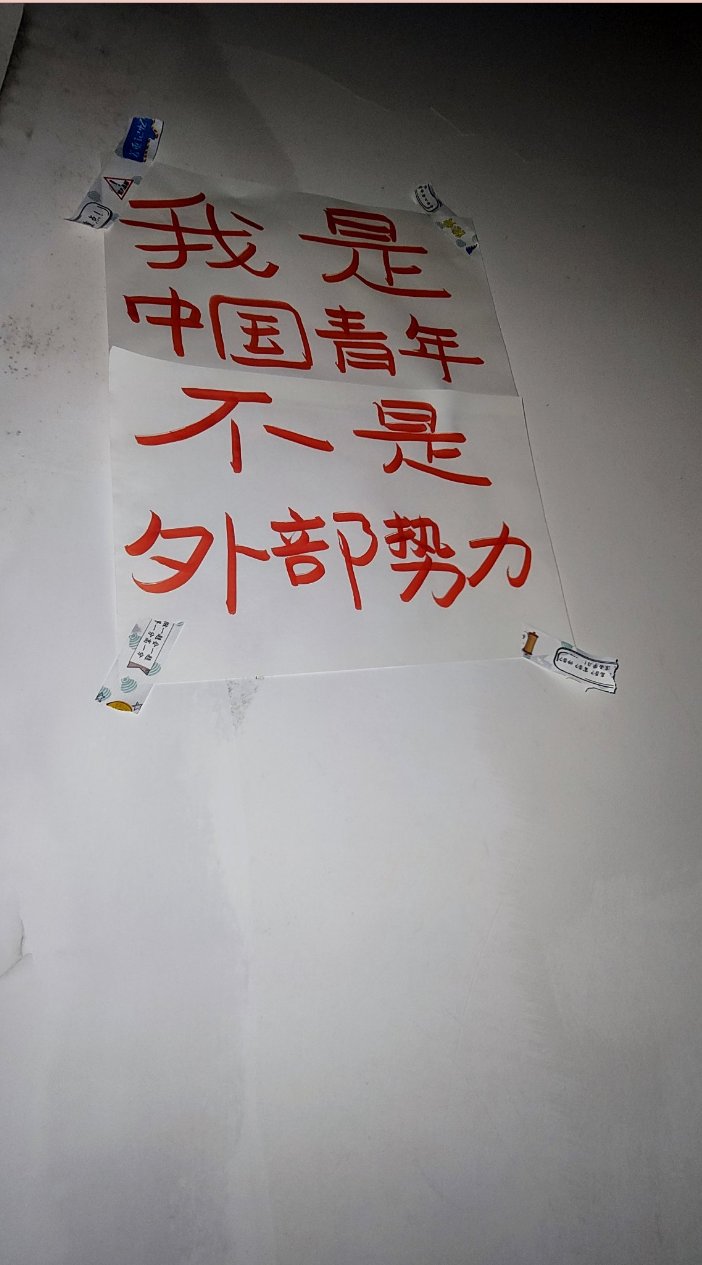 我是
中国青年
不是
外部势力